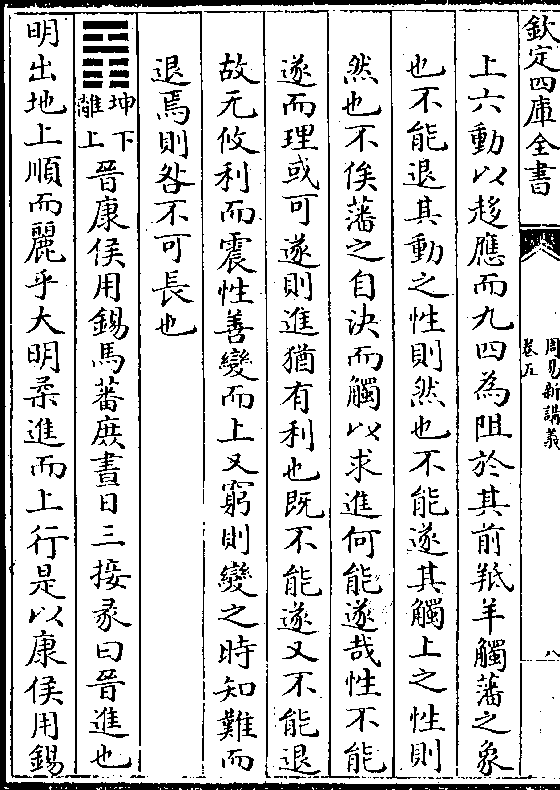 欽定四庫全書
周易新講義
卷五
八
上六動以趍應而九四為阻於其前羝羊觸藩之象
也不能退其動之性則然也不能遂其觸上之性則
然也不俟藩之自決而觸以求進何能遂哉性不能
遂而理或可遂則進猶有利也既不能遂又不能退
故无攸利而震性善變而上又窮則變之時知難而
退焉則咎不可長也
坤下
離上
晉康侯用錫馬蕃庶晝日三接彖曰晉進也
明出地上順而麗乎大明柔進而上行是以康侯用錫